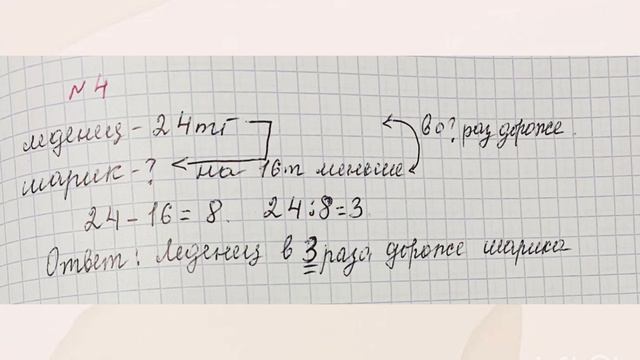 № 4
леденец - 24тг во ? раз дороже.
шарик - ? на 16т меньше
24 - 16 = 8. 24 : 8 = 3
Ответ: Леденец в 3 раза дороже шарика